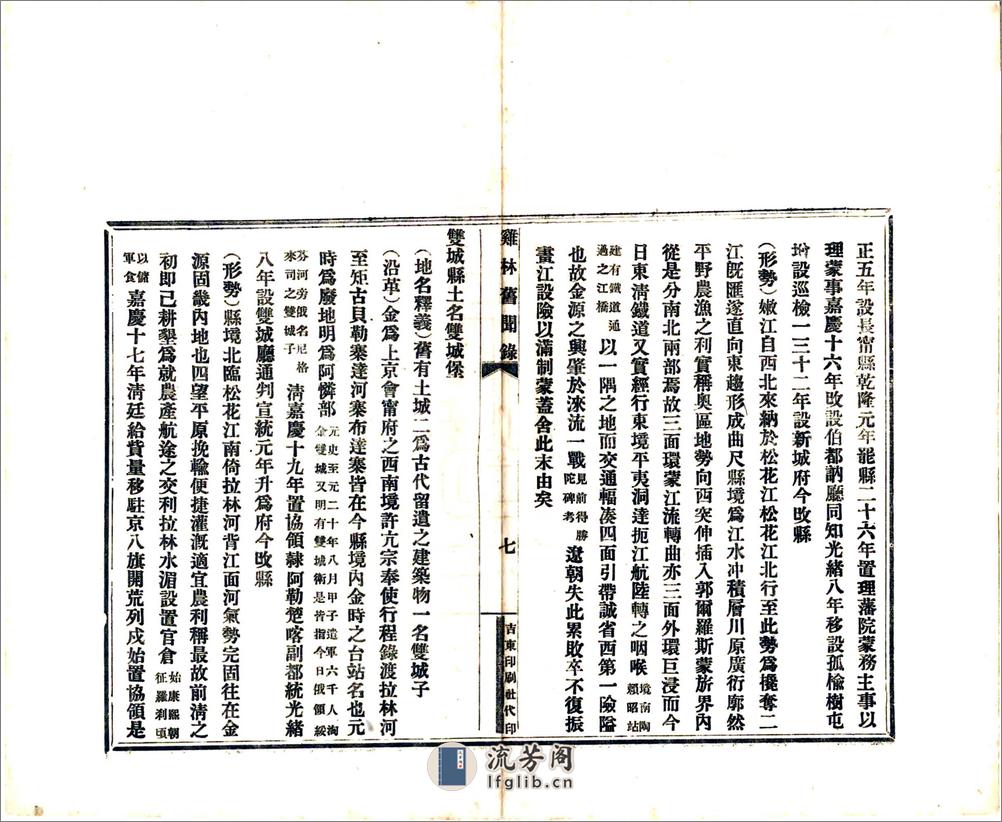 正五年設長甯縣乾隆元年罷縣二十六年置理藩院蒙務主事以
理蒙事嘉慶十六年改設伯都訥廳同知光緒八年移設孤榆樹屯
增設巡檢一三十二年設新城府今改縣
(形勢)嫩江自西北來納於松花江松花江北行至此勢爲攙奪二
江旣匯遂直向東趨形成曲尺縣境爲江水冲積層川原廣衍廓然
平野農漁之利實稱奧區地勢向西突伸插入郭爾羅斯蒙旂界內
從是分南北兩部焉故三面環蒙江流轉曲亦三面外環巨浸而今
日東淸鐵道又實經行東境平夷洞達扼江航陸轉之咽喉境南陶賴昭站
建有鐵道通過之江橋以一隅之地而交通輻湊四面引帶誠省西第一險隘
也故金源之興肇於淶流一戰見前得勝陀碑考遼朝失此累敗卒不復振
畫江設險以滿制蒙蓋舍此末由矣
雞林舊聞錄
七
吉東印刷社代印
雙城縣土名雙城堡
(地名釋義)舊有土城二爲古代留遺之建築物一名雙城子
(沿革)金爲上京會甯府之西南境許亢宗奉使行程錄渡拉林河
至矩古貝勒寨達河寨布達寨皆在今縣境內金時之台站名也元
時爲廢地明爲阿憐部元史至元二十年八月甲子遣軍六千人淘金雙城又明有雙城衛是皆指今日俄領綏
芬河旁俄名尼格來司之雙城子淸嘉慶十九年置協領隸阿勒楚喀副都統光緒
八年設雙城廳通判宣統元年升爲府今改縣
(形勢)縣境北臨松花江南倚拉林河背江面河氣勢完固往在金
源固畿內地也四望平原挽輸便捷灌漑適宜農利稱最故前淸之
初即已耕墾爲就農產航途之交利拉林水湄設置官倉始康熙朝征羅刹頃
以儲軍食嘉慶十七年淸廷給貲量移駐京八旗開荒列戍始置協領是
流芳阁
lfglib.cn